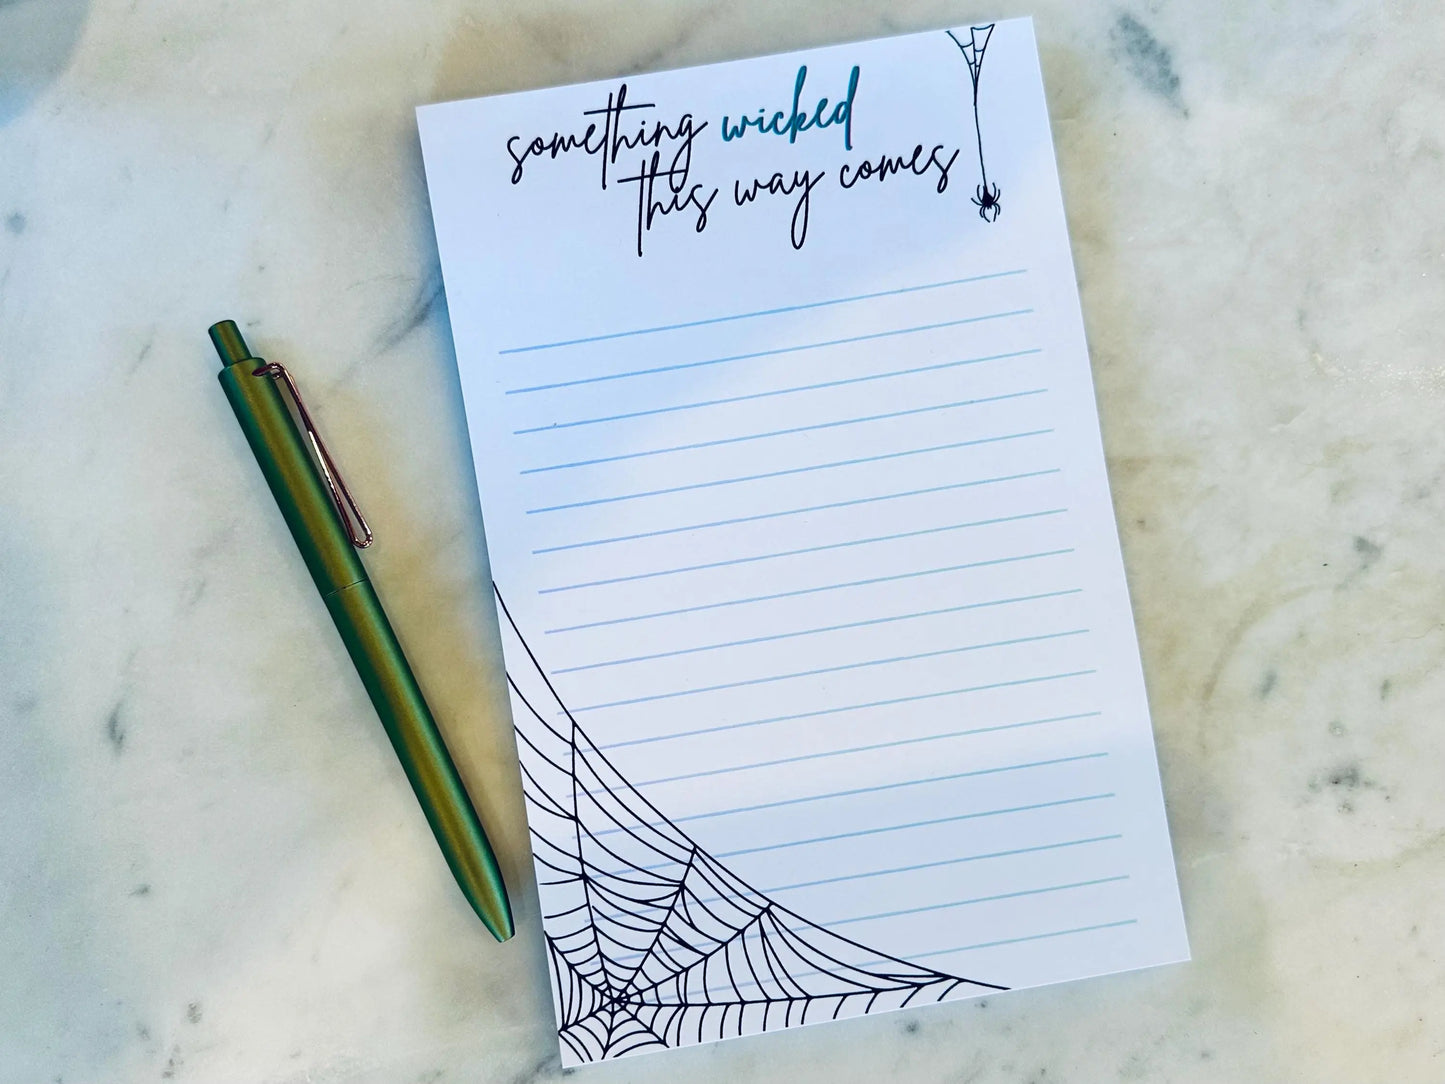 something wicked
this way comes